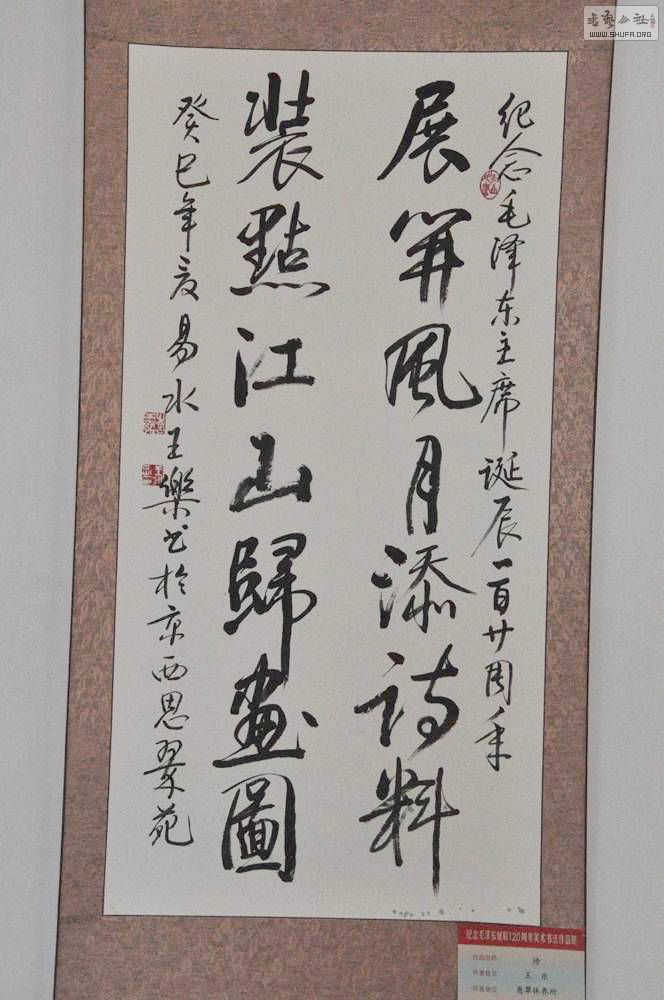 纪念毛泽东主席诞辰一百廿周年
展開風月添詩料
裝點江山歸畫圖
癸巳年夏易水王樂书於京西思翠苑
书艺公社
WWW.SHUFA.ORG
纪念毛泽东诞辰120周年美术书法作品展
作品名称
作者姓名 王乐
思翠休养所